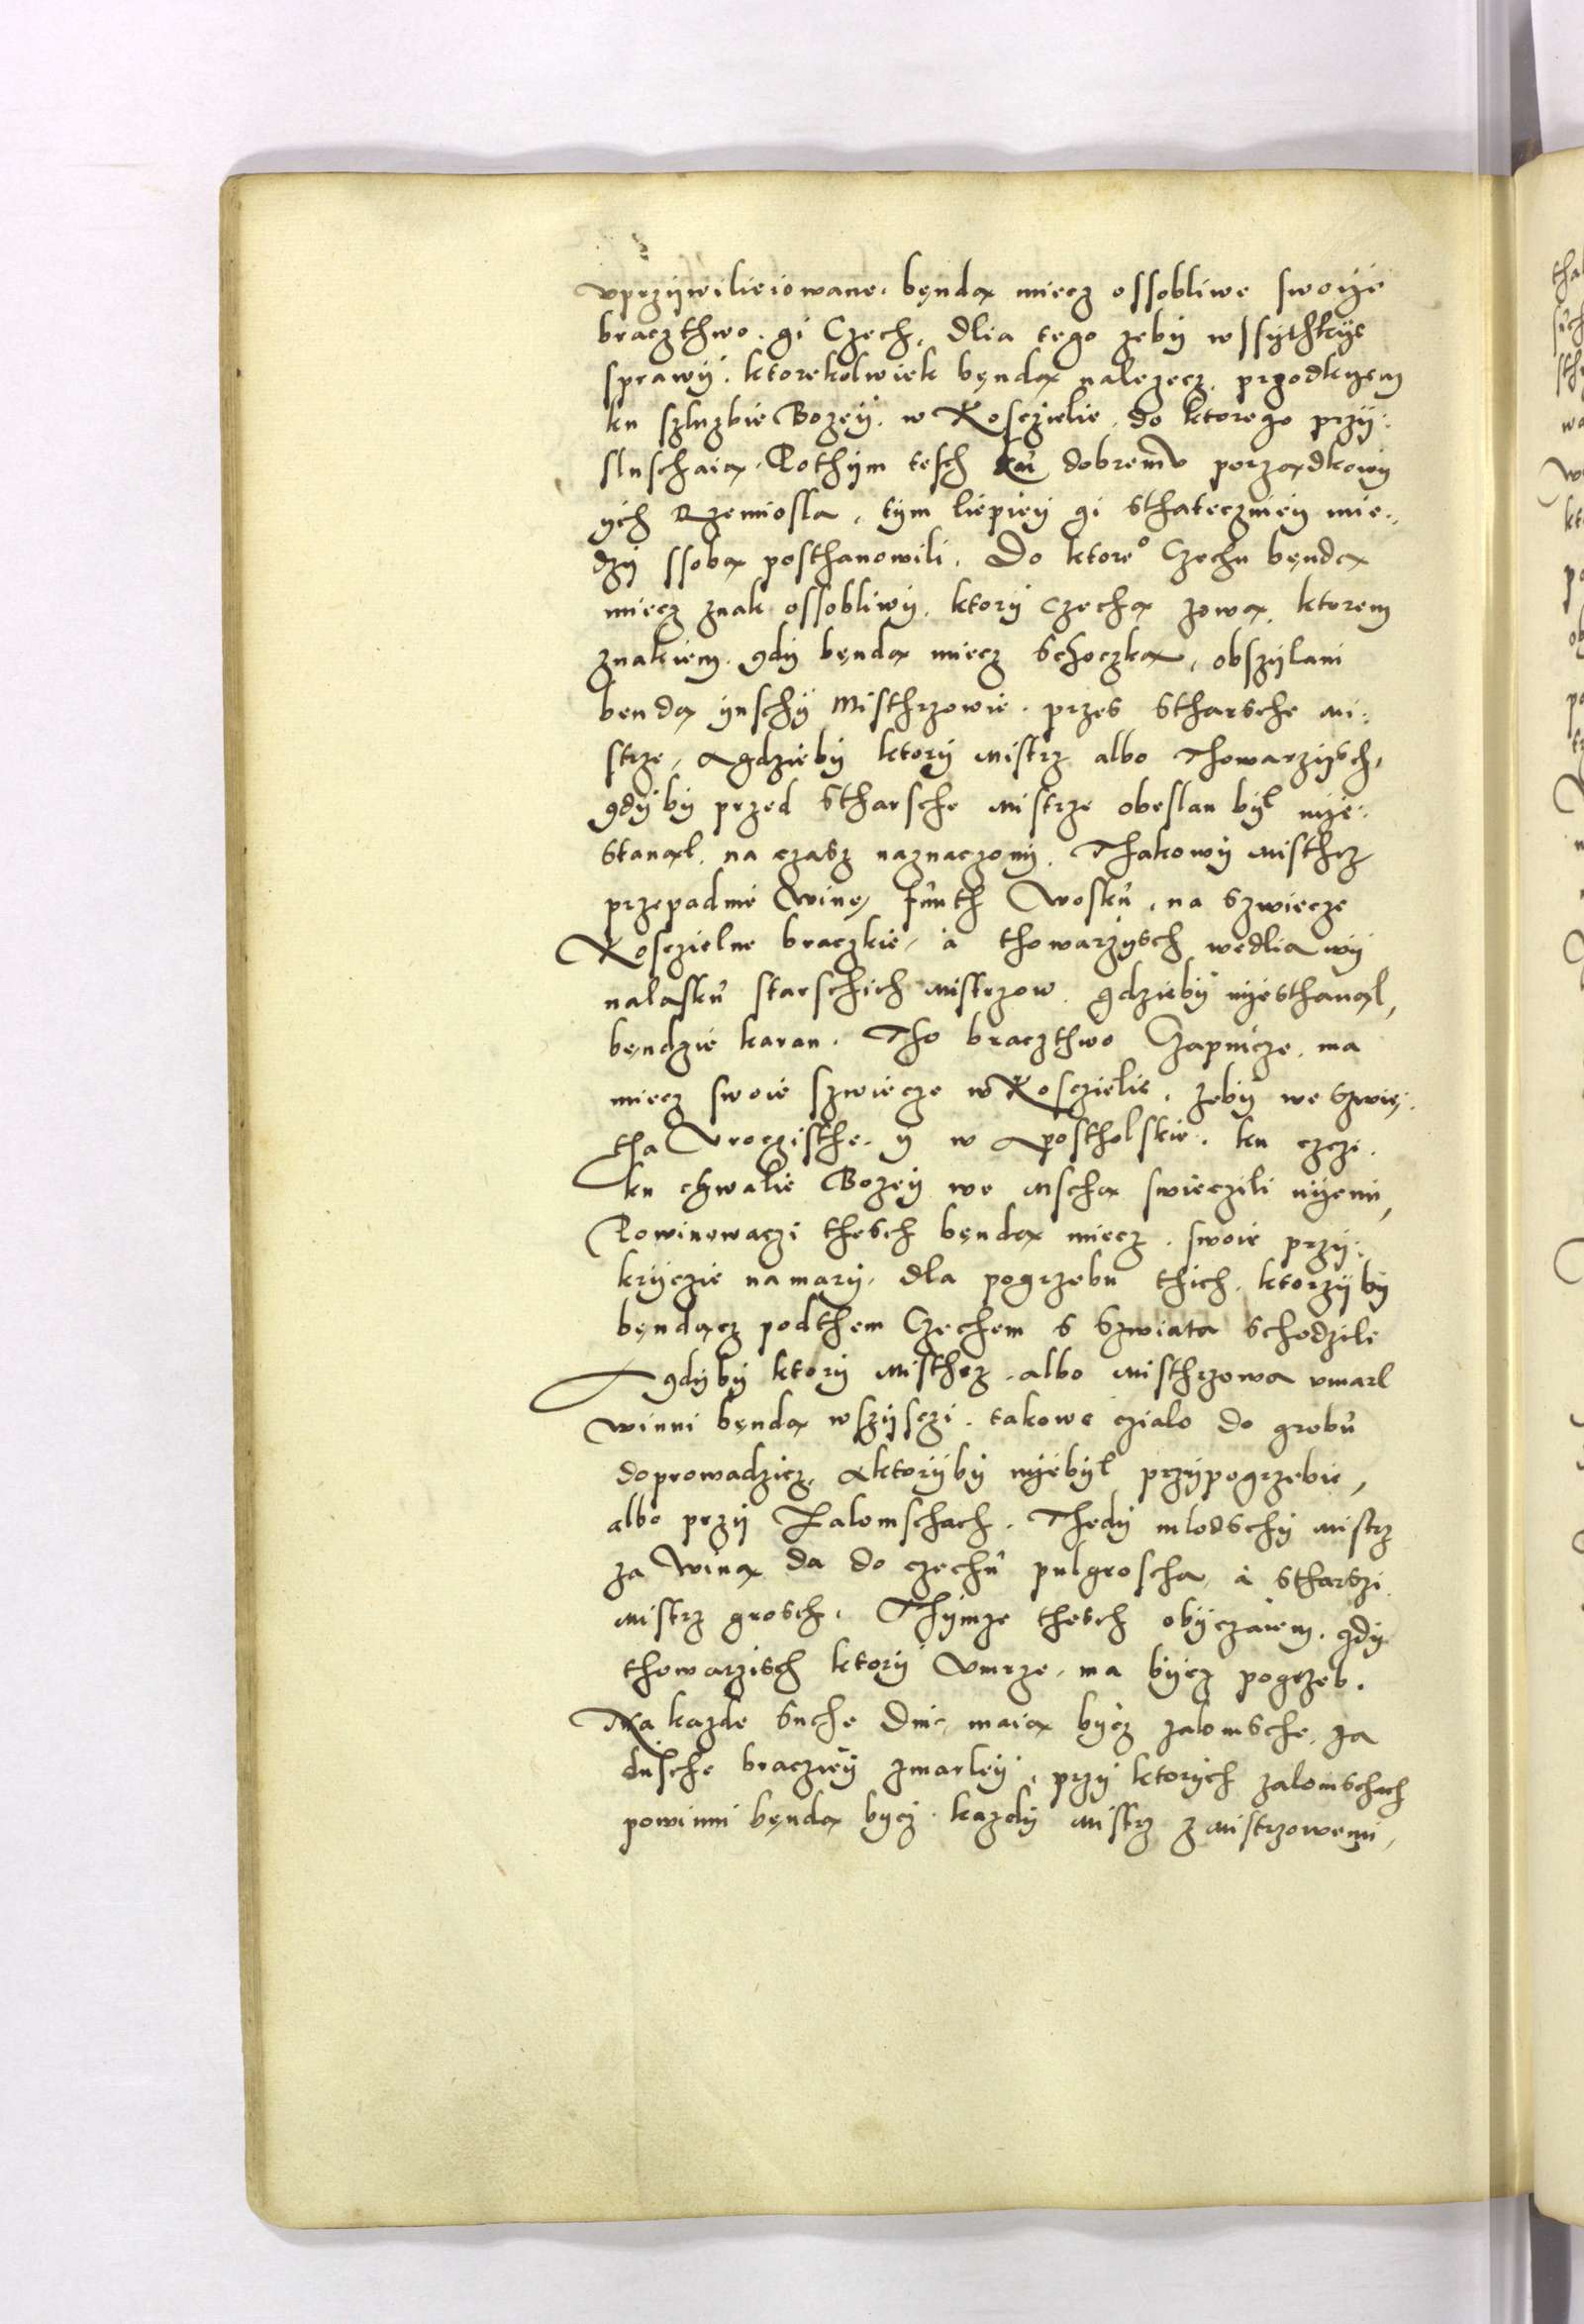 vprzÿwilieiowane. bęndą miecz ossobliwe swoÿe
braczthwo. gi Czech, dlia tego zebÿ wssÿthkÿe
sprawÿ. ktorekolwiek bęndą nalezecz. przodkyem
ku szluzbie Bozeÿ. w Kosczielie. do ktorego przÿ:
sluschaią. Pothÿm tesch ku dobremu porządkowÿ
ÿch Rzemiosla, tÿm liepieÿ gi sthateczniеÿ mie:
dzÿ ssobą posthanowili. Do ktore° Czechu bęndą
miecz znak ossobliwÿ. ktorÿ Czechą zową. ktorem
znakiem. gdÿ bęndą miecz schoczką, obszÿlani
benda ÿnschÿ Misthrzowie. przes stharsche Mi:
strze, Agdziebÿ ktorÿ Mistrz albo Thowarzÿsch,
gdÿbÿ przed stharsche Mistrze obeslan bÿl nÿe:
stanął. na czasz naznaczonÿ. Thakowÿ Misthrz
przepadnie Winę funth Wosku, na szwiecze
Kosczielne braczkie, a thowarzÿsch wedlia wÿ
nalasku starschich Mistrzow. gdziebÿ nÿesthanął,
bęndzie karan. Tho braczthwo Czapnicze. ma
miecz swoie szwiecze w Kosczielie. zebÿ we szwię:
tha Vroczisthe. ÿ w Apostholskie. ku czczi.
ku chwalie Bozeÿ we Mschą swieczili nÿemi,
Powinowaczi thesch bęndą miecz. swoie przÿ:
krÿczie na marÿ, dla pogrzebu thich. ktorzÿbÿ
bendącz podthem Czechem s szwiata schodzili
Agdÿbÿ ktorÿ Misthrz. albo Misthrzowa vmarl
winni bęndą wszÿsczi. takowe czialo do grobu
doprowadzicz, Aktorÿbÿ nÿebÿl przÿpogrzebie,
albo przÿ Zalomschach. Thedÿ mlodschÿ Mistrz
za winą da do czechu pulgroscha, a stharszi
Mistrz grosch. Thÿmze thesch obÿczaiem. gdÿ
thowarzisch ktorÿ Vmrze, ma bÿcz pogrzeb.
Na kazde suche Dni, maią bÿcz zalomsche, za
dusche braczieÿ zmarleÿ, przÿ ktorÿch zalomschach
powinni bęndą bÿcz. kazdÿ Mistrz z Mistrzowemi,